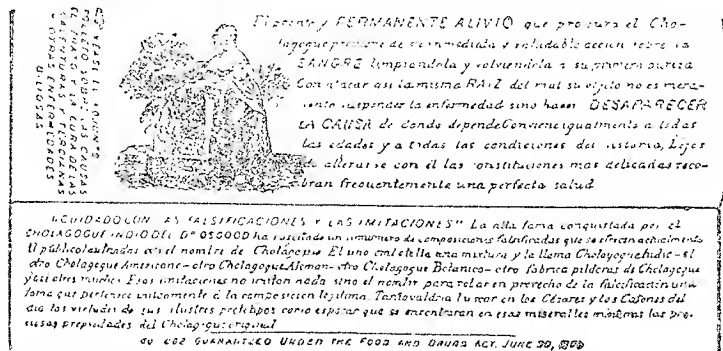 El pronto y PERMANENTE ALIVIO que procura el Cho-
lagogue proviene de su inmediata y saludable accion sobre la
SANGRE limpiandola y volviendola a su primera pureza
Con atacar asi la misma RAIZ del mal su objeto no es mera-
mente suspender la enfermedad sino hacer DESAPARECER
LA CAUSA de donde depende Conviene igualmente a todas
las edades y a todas las condiciones del Lejos
de alterarse con él las constituciones mas delicadas reco-
bran frecuentemente una perfecta salud
CALENTURAS Y TERCIANAS
Y OTRAS ENFERMEDADES
BILIOSAS
"CUIDADO CON LAS FALSIFICACIONES Y LAS IMITACIONES" La alta fama conquistada por el
CHOLAGOGUE INDIO DEL Dr OSGOOD ha suscitado un sinnumero de composiciones falsificadas que se ofrecen actualmente
al público con el nombre de Cholagogue El uno embotella una mixtura y la llama - el
otro Cholagogue Americano - otro Cholagogue Aleman - otro Cholagogue Botanico - otro fabrica pildoras de Cholagogue
y asi otros muchos Esas imitaciones no imitan nada sino el nombre para robar en provecho de la falsificacion una
fama que pertenece unicamente á la composicion legitima. Tanto valdria buscar en los Césares y los Catones del
dia las virtudes de sus ilustres prototipos como esperar que se encontraran en esas miserables mixturas las pre-
ciosas propiedades del Cholagogue original
GUARANTEED UNDER THE FOOD AND DRUGS ACT, JUNE 30, 1906